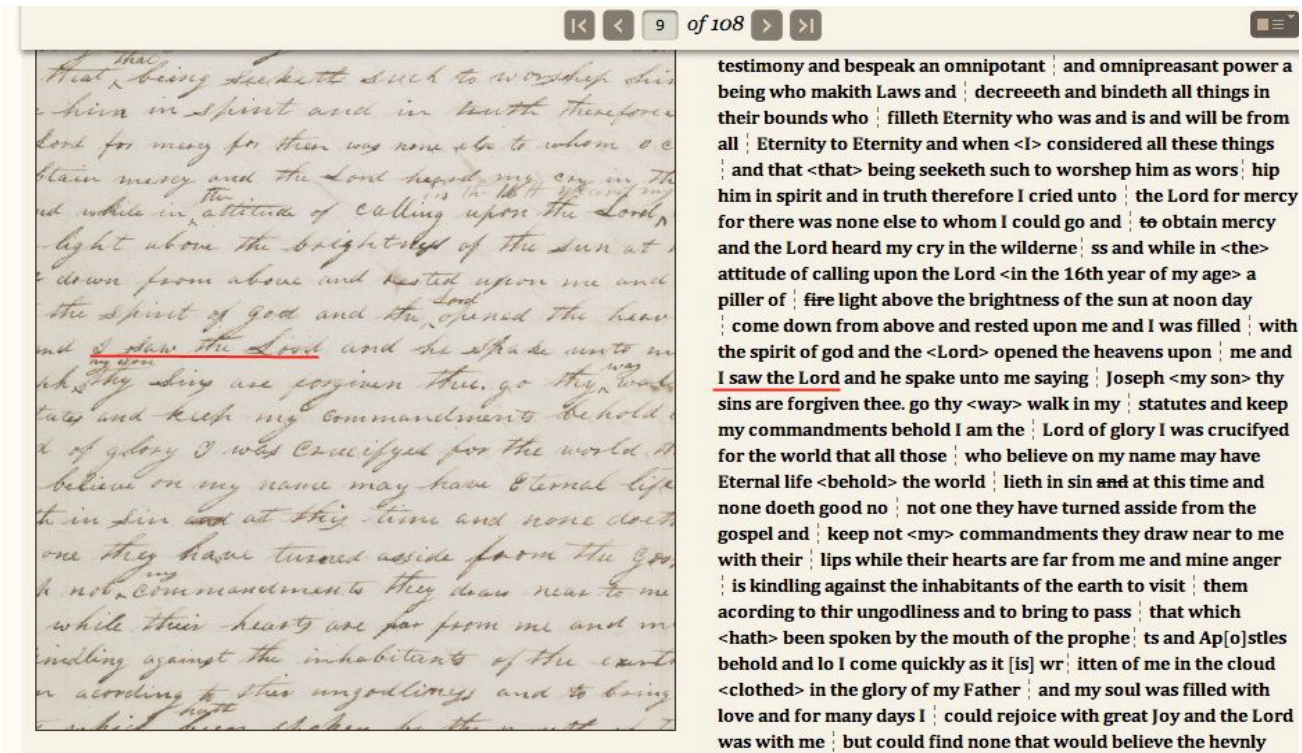 9 of 108
that
that being seeketh such to worship him
him in spirit and in truth therefore
Lord for mercy for there was none else to whom I c
btain mercy and the Lord heard my cry in th
the in the 16th year of my
nd while in attitude of calling upon the Lord
light above the brightness of the sun at
down from above and rested upon me and
Lord
the spirit of god and the opened the heav
nd I saw the Lord and he spake unto m
my son was
ph thy sins are forgiven thee. go thy walk
tutes and keep my commandments behold
d of glory I was crucifyed for the world th
believe on my name may have Eternal life
th in sin and at this time and none doeth
one they have turned asside from the gos
my
p not commandments they draw near to me
while their hearts are far from me and m
indling against the inhabitants of the earth
m acording to thir ungodliness and to bring
hath
which been spoken by the mouth of t
testimony and bespeak an omnipotant ¦ and omnipreasant power a
being who makith Laws and ¦ decreeeth and bindeth all things in
their bounds who ¦ filleth Eternity who was and is and will be from
all ¦ Eternity to Eternity and when <I> considered all these things
¦ and that <that> being seeketh such to worshep him as wors¦ hip
him in spirit and in truth therefore I cried unto ¦ the Lord for mercy
for there was none else to whom I could go and ¦ to obtain mercy
and the Lord heard my cry in the wilderne¦ ss and while in <the>
attitude of calling upon the Lord <in the 16th year of my age> a
piller of ¦ fire light above the brightness of the sun at noon day
¦ come down from above and rested upon me and I was filled ¦ with
the spirit of god and the <Lord> opened the heavens upon ¦ me and
I saw the Lord and he spake unto me saying ¦ Joseph <my son> thy
sins are forgiven thee. go thy <way> walk in my ¦ statutes and keep
my commandments behold I am the ¦ Lord of glory I was crucifyed
for the world that all those ¦ who believe on my name may have
Eternal life <behold> the world ¦ lieth in sin and at this time and
none doeth good no ¦ not one they have turned asside from the
gospel and ¦ keep not <my> commandments they draw near to me
with their ¦ lips while their hearts are far from me and mine anger
¦ is kindling against the inhabitants of the earth to visit ¦ them
acording to thir ungodliness and to bring to pass ¦ that which
<hath> been spoken by the mouth of the prophe¦ ts and Ap[o]stles
behold and lo I come quickly as it [is] wr¦ itten of me in the cloud
<clothed> in the glory of my Father ¦ and my soul was filled with
love and for many days I ¦ could rejoice with great Joy and the Lord
was with me ¦ but could find none that would believe the hevnly